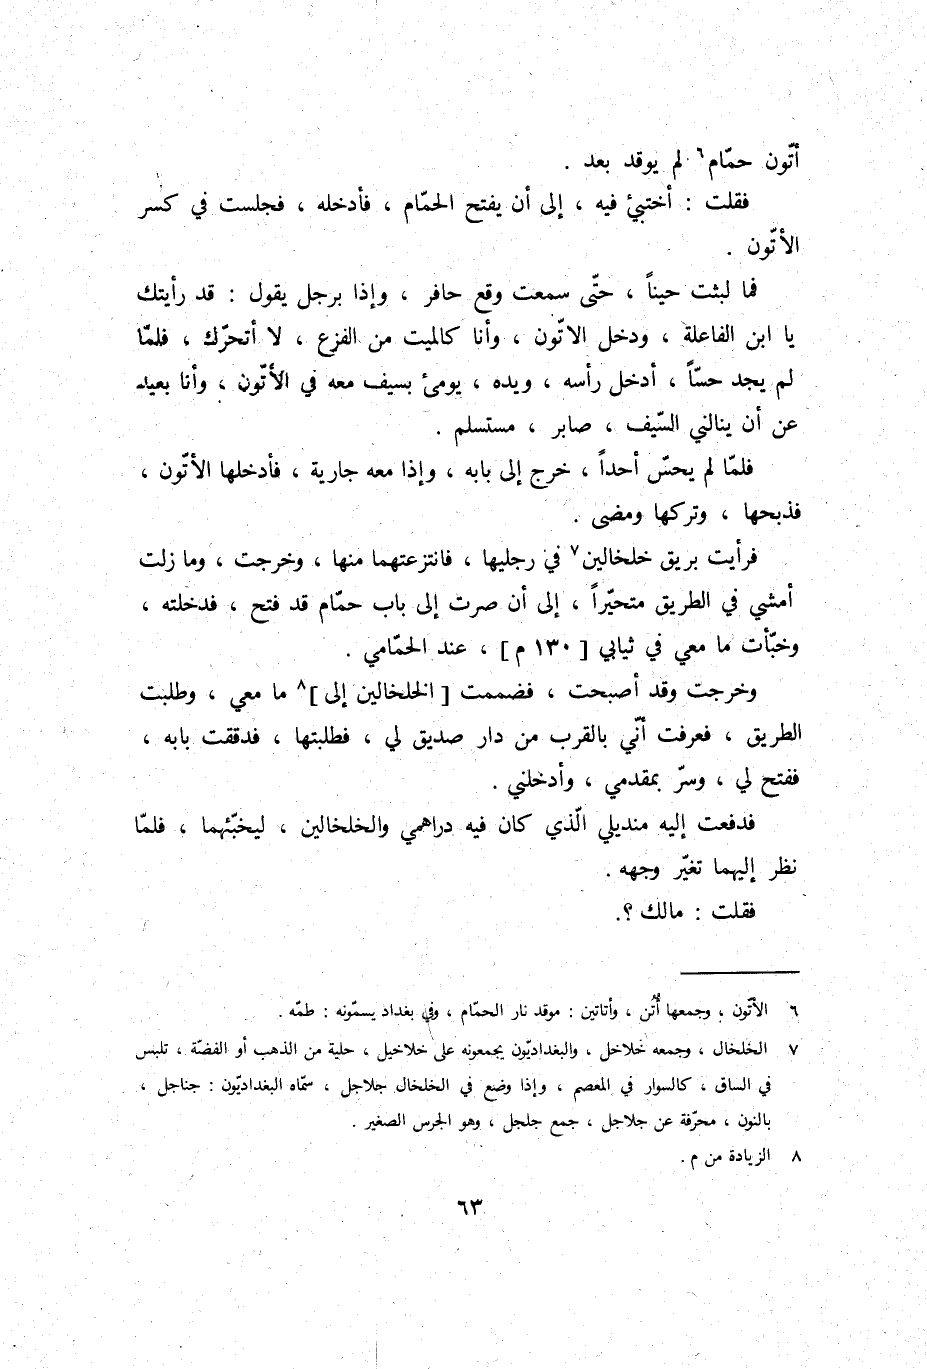 أتّون حمّام٦ لم يوقد بعد .
فقلت : أختبئ فيه ، إلى أن يفتح الحمّام ، فأدخله ، فجلست في كسر
الأتّون .
فما لبثت حيناً ، حتّى سمعت وقع حافر ، وإذا برجل يقول : قد رأيتك
يا ابن الفاعلة ، ودخل الاتّون ، وأنا كالميت من الفزع ، لا أتحرّك ، فلمّا
لم يجد حسّاً ، أدخل رأسه ، ويده ، يومئ بسيف معه في الأتّون ، وأنا بعيد
عن أن ينالني السّيف ، صابر ، مستسلم .
فلمّا لم يحسّ أحداً ، خرج إلى بابه ، وإذا معه جارية ، فأدخلها الأتّون ،
فذبحها ، وتركها ومضى .
فرأيت بريق خلخالين٧ في رجليها ، فانتزعتهما منها ، وخرجت ، وما زلت
أمشي في الطريق متحيّراً ، إلى أن صرت إلى باب حمّام قد فتح ، فدخلته ،
وخبّأت ما معي في ثيابي [ ١٣٠ م ] ، عند الحمّامي .
وخرجت وقد أصبحت ، فضممت [ الخلخالين إلى ]٨ ما معي ، وطلبت
الطريق ، فعرفت أنّي بالقرب من دار صديق لي ، فطلبتها ، فدققت بابه ،
ففتح لي ، وسرّ بمقدمي ، وأدخلني .
فدفعت إليه منديلي الّذي كان فيه دراهمي والخلخالين ، ليخبّئهما ، فلمّا
نظر إليهما تغيّر وجهه .
فقلت : مالك ؟.
٦ الأتّون ، وجمعها أُتُن ، وأتاتين : موقد نار الحمّام ، وفي بغداد يسمّونه : طمّه .
٧ الخلخال ، وجمعه خلاخل ، والبغداديّون يجمعونه على خلاخيل ، حلية من الذهب أو الفضّة ، تلبس
في الساق ، كالسوار في المعصم ، وإذا وضع في الخلخال جلاجل ، سمّاه البغداديّون : جناجل ،
بالنون ، محرّفة عن جلاجل ، جمع جلجل ، وهو الجرس الصغير .
٨ الزيادة من م .
٦٣